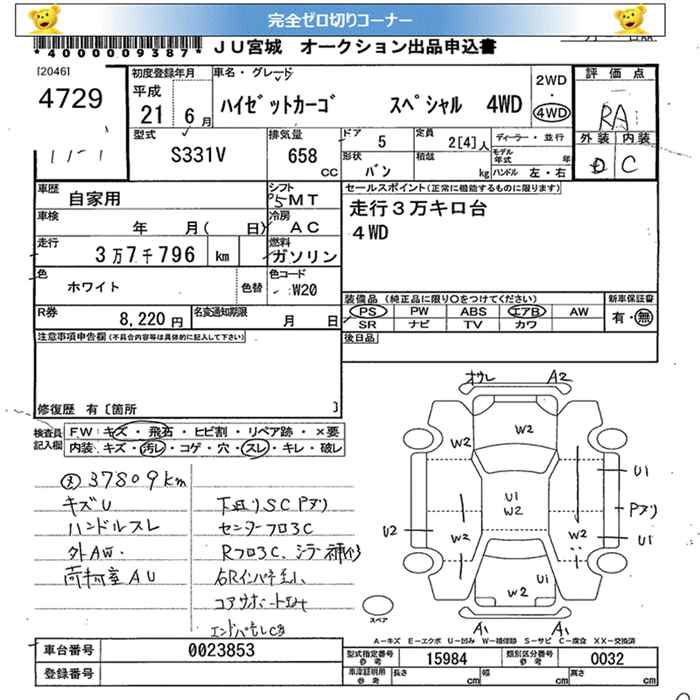 完全ゼロ切りコーナー
*4000009387*
JU宮城 オークション出品申込書
[2046]
4729
初度登録年月
平成
21 6月
車名・グレード
ハイゼットカーゴ スペシャル 4WD
2WD
・
4WD
評価点
RA
外装 内装
D C
型式
S331V
排気量
658 cc
ドア 5
定員 2[4]人
ディーラー・並行
形状 バン
積載 kg
モデル年式 年
ハンドル 左・右
車歴 自家用
シフト 5MT
セールスポイント(正常に機能するものに限ります)
走行3万キロ台
4WD
車検 年 月( 日)
冷房 AC
走行 3万7千796 km
燃料 ガソリン
色 ホワイト 色替
色コード W20
R券 8,220円
名変通知期限 月 日
装備品(純正品に限り○をつけてください)
PS PW ABS エアB AW
SR ナビ TV カワ
新車保証書
有・無
後日品
注意事項申告欄(不具合内容等は具体的に記入して下さい)
修復歴 有[箇所 ]
検査員記入欄
FW:キズ・飛石・ヒビ割・リペア跡・×要
内装:キズ・汚レ・コゲ・穴・スレ・キレ・破レ
37809km
キズU
ハンドルスレ
外AW.
荷物室AU
下廻りSC Pアリ
センターフロアC
Rフロア C、シラー補修
コアサポート
オクレ A2
W2 W2
U1
U1
W2
Pアリ
U2 W2 W2 U1
U1
W2
A1 A1
スペア
A-キズ E-エクボ U-凹み W-補修跡 S-サビ C-腐食 XX-交換済
車台番号 0023853
登録番号
型式指定番号 参考 15984
類別区分番号 参考 0032
車庫証明用 参考 長さ cm 幅 cm 高さ cm